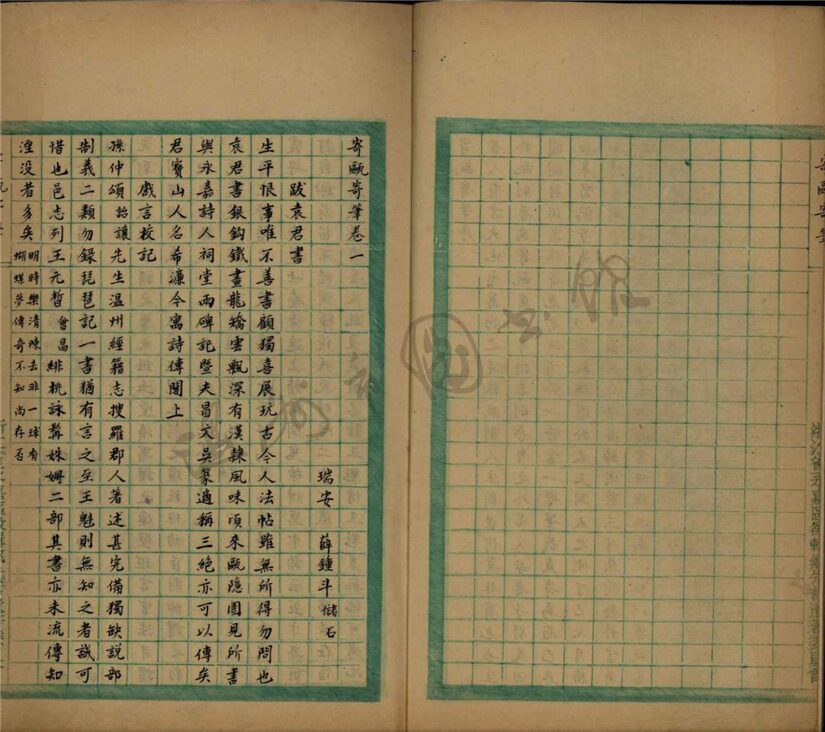 寄甌寄筆卷一
瑞安　薛鍾斗儲石
跋袁君書
生平恨事唯不善書顧獨喜展玩古今人法帖雖無所得勿問也
袁君書銀鈎鐵畫龍矯雲飄深有漢隸風味頃來甌隱園見所書
與永嘉詩人祠堂兩碑記暨夫昌文吳篆適稱三絕亦可以傳矣
君寶山人名希濂今寓詩傳閣上
戲言校記
孫仲頌詒讓先生温州經籍志搜羅郡人著述甚完備獨缺説部
制義二類勿錄琵琶記一書猶有言之至王魁則無知之者誠可
惜也邑志列王元晳會昌緋桃詠髯姝姆二部其書亦未流傳知
湮没者多矣明時樂清陳去非一球有
蝴蝶夢傳奇不知尚存否